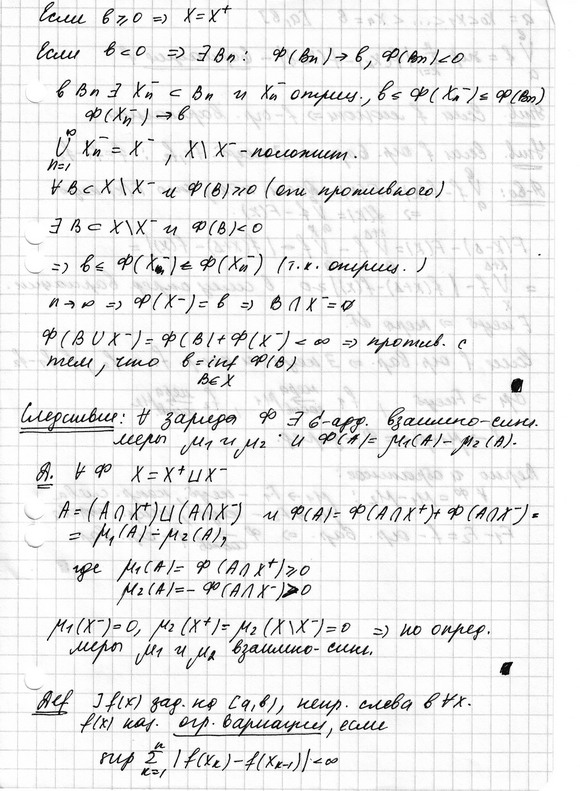 Если b ≥ 0 => X = X⁺
Если b < 0 => ∃ Bn : Ф(Bn) → b, Ф(Bn) < 0
в Bn ∃ Xn⁻ ⊂ Bn и Xn⁻ отриц., b ≤ Ф(Xn⁻) ≤ Ф(Bn)
Ф(Xn⁻) → b
∞ ⋃ n=1 Xn⁻ = X⁻, X\X⁻ - положит.
∀ B ⊂ X\X⁻ и Ф(B) ≥ 0 (от противного)
∃ B ⊂ X\X⁻ и Ф(B) < 0
=> b ≤ Ф(X⁻) ≤ Ф(Xn⁻) (т.к. отриц.)
n → ∞ => Ф(X⁻) = b => B ∩ X⁻ = ∅
Ф(B ∪ X⁻) = Ф(B) + Ф(X⁻) < ∞ => против. с
тем, что b = inf Ф(B)
B ∈ X
Следствие: ∀ заряда Ф ∃ б-адд. взаимно-синг.
меры μ1 и μ2 и Ф(A) = μ1(A) - μ2(A).
Д. ∀ Ф X = X⁺ ⊔ X⁻
A = (A ∩ X⁺) ⊔ (A ∩ X⁻) и Ф(A) = Ф(A ∩ X⁺) + Ф(A ∩ X⁻) =
= μ1(A) - μ2(A),
где μ1(A) = Ф(A ∩ X⁺) ≥ 0
μ2(A) = - Ф(A ∩ X⁻) ≥ 0
μ1(X⁻) = 0, μ2(X⁺) = μ2(X\X⁻) = 0 => по опред.
меры μ1 и μ2 взаимно-синг.
Def ] f(x) зад. на [a, b), непр. слева в ∀ x.
f(x) наз. огр. вариации, если
sup n Σ k=1 |f(xk) - f(xk-1)| < ∞